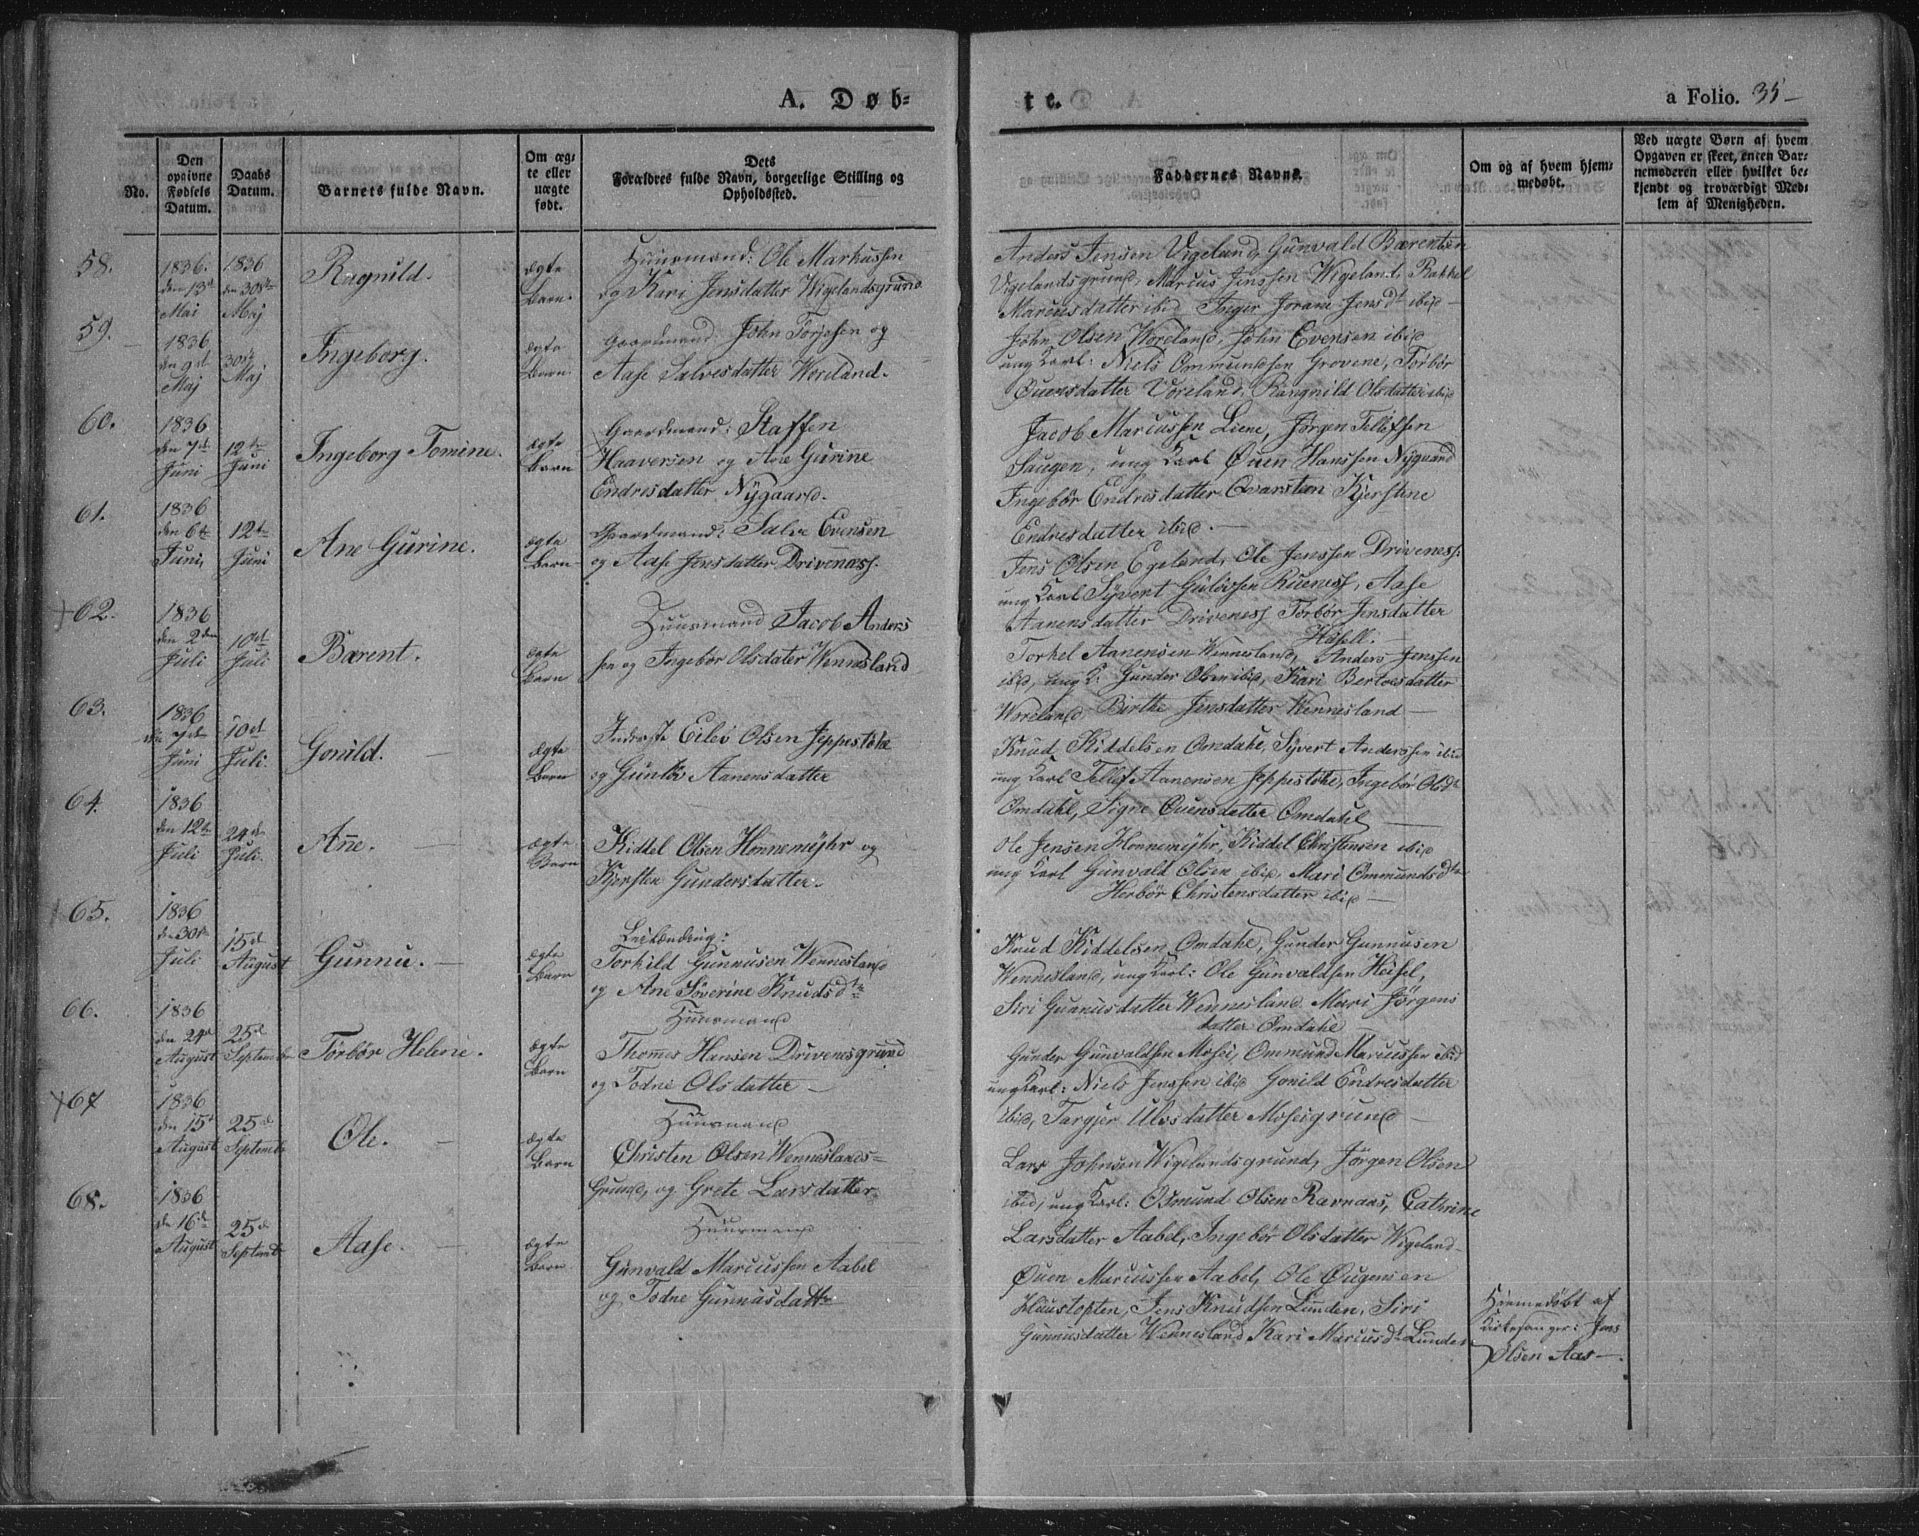 A. Døb-
No.
Den opgivne Fødsels Datum.
Daabs Datum.
Barnets fulde Navn.
Om ægte eller uægte født.
Dets Forældres fulde Navn, borgerlige Stilling og Opholdssted.
58.
1836. den 13de Mai
1836 den 30te Maj
Ragnild.
ægte Barn.
Huusmand: Ole Markussen
og Kari Jensdatter Wigelandsgrund
59.
1836 den 9de Maj
30te Maj
Ingeborg.
ægte Barn.
Gaardmand: John Torjesen og
Aase Salvesdatter Woreland.
60.
1836 den 7de Juni
12te Juni
Ingeborg Tomine.
ægte Barn
Gaardmand: Staffen
Haaversen og Ane Gurine
Endresdatter Nÿgaard.
61.
1836 den 6te Juni,
12te Juni
Ane Gurine.
ægte Barn
Gaardmand: Salve Evensen
og Aase Jensdatter Drivenæss.
62.
1836 den 2den Juli
10de Juli
Bærent.
ægte Barn
Huusmand Jacob Anders
sen og Ingebør Olsdater Wennesland
63.
1836 den 7de Juni
10de Juli.
Gonild.
ægte Barn
Inderste Eilev Olsen Jeppestøle
og Gunlør Aanensdatter
64.
1836 den 12te Juli
24de Juli.
Ane.
ægte Barn
Kiddel Olsen Honnemÿhr og
Kjersten Gundersdatter.
65.
1836 den 30te Juli
15de August
Gunnu.
ægte Barn
Leilænding:
Torkild Gunnusen Wennesland
og Ane Søverine Knudsdtr
66.
1836 den 24de August
25de September
Torbør Helene.
ægte Barn
Huusmand
Thomes Hansen Drivenesgrund
og Todne Olsdatter
67
1836 den 15de August
25de September
Ole.
ægte Barn
Huusmand
Christen Olsen Wenneslands-
Grund, og Grete Larsdatter
68.
1836 den 16de August
25de September
Aase.
ægte Barn
Huusmand
Gunvald Marcussen Aabel
og Todne Gunnusdattr
te.
a Folio. 35
Faddernes Navne.
Om og af hvem hjemmedøbt.
Ved uægte Børn af hvem Opgaven er skeet, enten Barnemoderen eller hvilket bekjendt og troværdigt Medlem af Menigheden.
Anders Jensen Vigeland, Gunvald Bærentsen
Vigelandsgrund, Marcus Jenssen Wigeland, Rakkel
Marcusdatter ibid Inger Jorane Jensdt ibid
John Olsen Woreland, John Evensen ibid
ung Karl: Niels Ommundsen Grovene, Torbør
Øuensdatter Voreland, Rangnild Olsdatter ibid
Jacob Marcussen Liene, Jørgen Tellefsen
Saugen, ung Karl Øuen Hanssen Nÿgaard
Ingebør Endresdatter Qvarsten Kjerstine
Endresdatter ibid.
Jens Olsen Egeland, Ole Jenssen Driveness.
ung Karl Sÿvert Guloissen Rueness, Aase
Aanensdatter Driveness Torbør Jensdatter
Høsell.
Torkel Aanensen Wennesland, Anders Jenssen
ibid, ung K: Gunder Olsen ibid, Kari Bertesdatter
Woreland Birthe Jensdatter Wennesland
Knud Kiddelsen Omdahl, Sÿvert Anderssen ibid
ung Karl Tellef Aanensen Jeppestøle, Ingebør Olsdt
Omdahl, Signe Øuensdatter Omdahl
Ole Jensen Honnemÿhr, Kiddel Christensen ibid
ung Karl Gunvald Olsen ibid, Mari Ommundsdtr
Herbør Christensdatter ibid
Knud Kiddelsen Omdahl, Gunder Gunnusen
Wennesland, ung Karl: Ole Gunvaldsen Heisel,
Siri Gunnusdatter Wennesland Mari Jørgens
datter Omdahl
Gunder Gunvaldsen Mosei, Ommund Marcussen ibid
ung Karl: Niels Jenssen ibid Gonild Endresdatter
ibid, Targjer Ulvsdatter Moseigrund
Lars Johnsen Wigelandsgrund, Jørgen Olsen
ibid, ung Karl: Osmund Olsen Ravnaas, Cathrine
Larsdatter Aabel, Ingebør Olsdatter Wigeland
Øuen Marcussen Aabel, Ole Øugensen
Huustoften, Jens Knudsen Lunden, Siri
Gunnusdatter Wennesland Kari Marcusdt Lunden
Hiemedøbt af
Kirkesanger: Jens
Olsen Aas